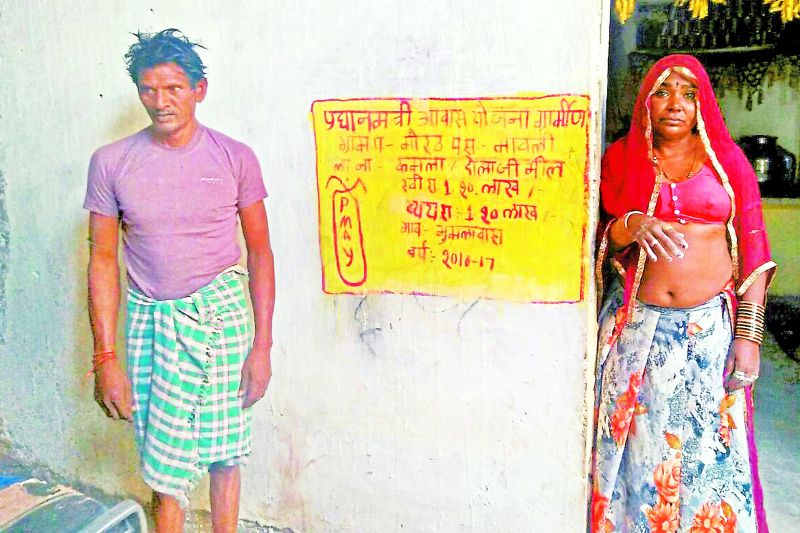 प्रधानमन्त्री आवास योजना ग्रामीण
ग्रा म प - मोरठ पं स :- लावली
ला ना :- कमला / दोलाजी मील
स्वी रा 1.20. लाख /-
व्यय रा : 1.20 लाख /-
गांव :- गुमलावास
वर्ष :- 2016-17
PMAY